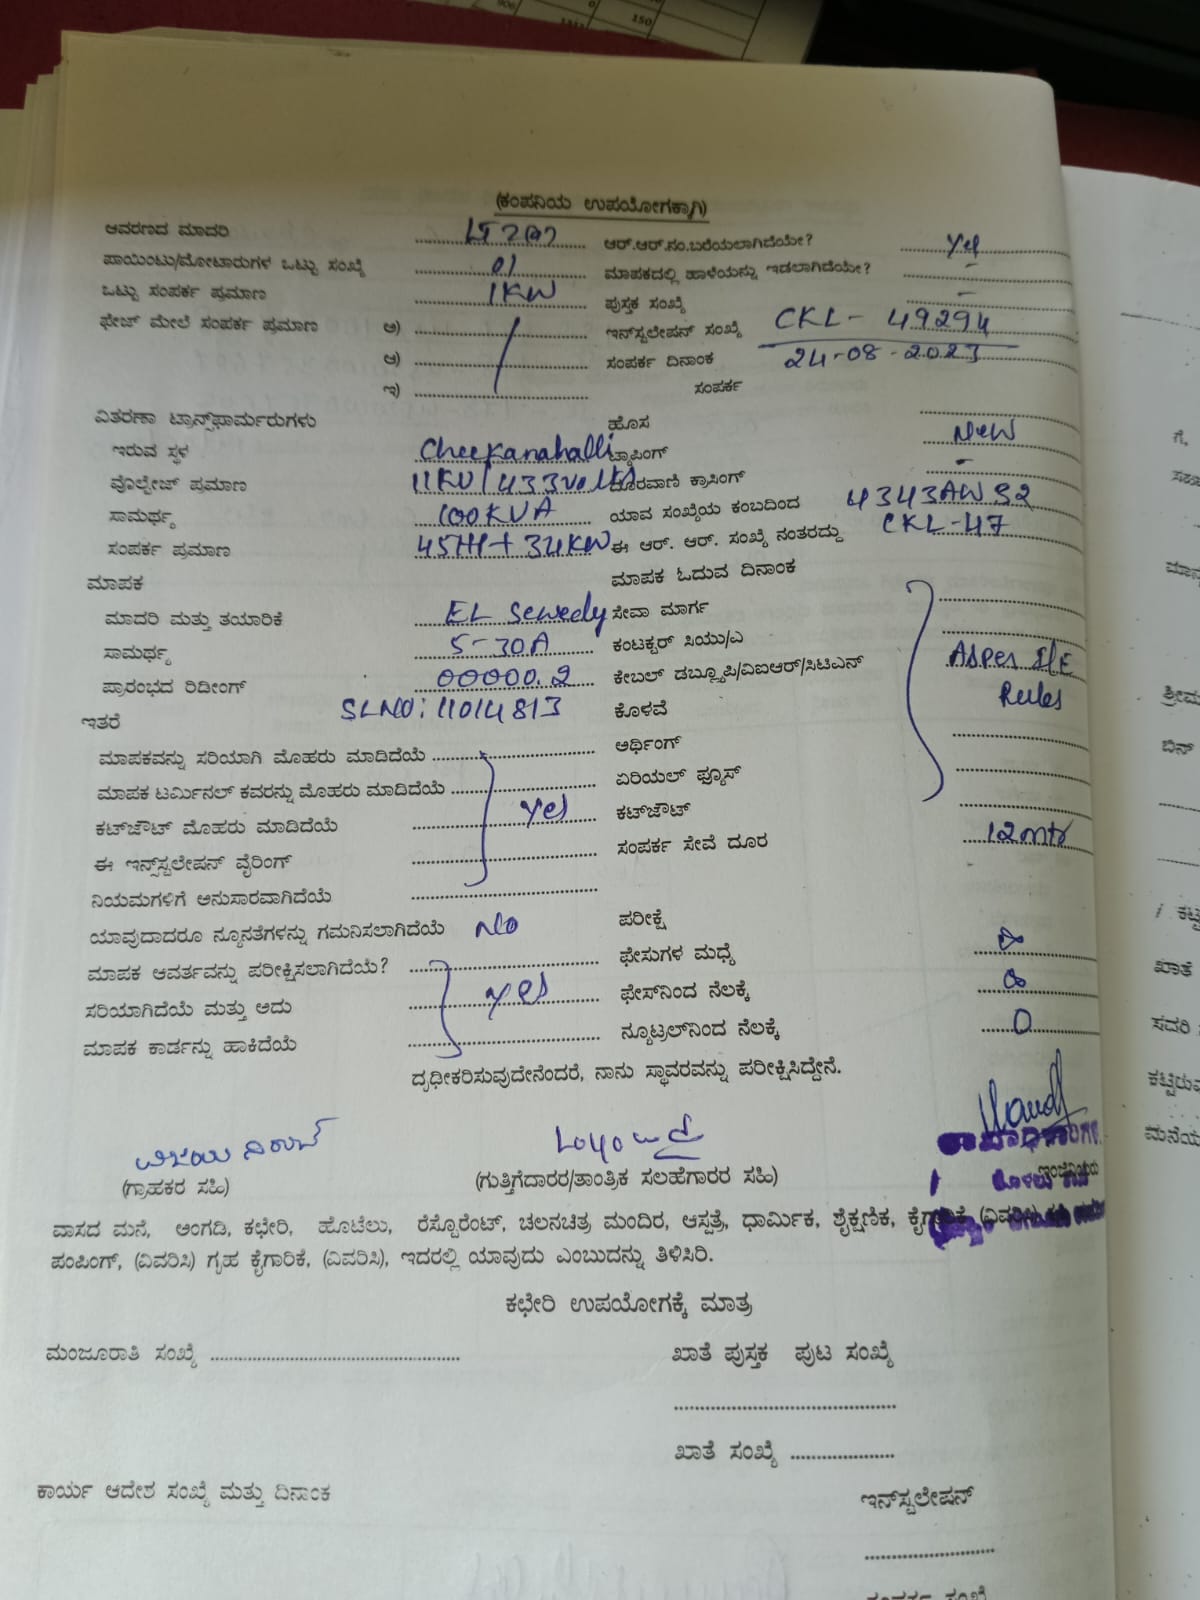 906
0
150
(ಕಂಪನಿಯ ಉಪಯೋಗಕ್ಕಾಗಿ)
ಆವರಣದ ಮಾದರಿ LT2(a) ಆರ್.ಆರ್.ನಂ.ಬರೆಯಲಾಗಿದೆಯೇ? Yes
ಪಾಯಿಂಟು/ಮೋಟಾರುಗಳ ಒಟ್ಟು ಸಂಖ್ಯೆ 01 ಮಾಪಕದಲ್ಲಿ ಹಾಳೆಯನ್ನು ಇಡಲಾಗಿದೆಯೇ? -
ಒಟ್ಟು ಸಂಪರ್ಕ ಪ್ರಮಾಣ 1KW ಪುಸ್ತಕ ಸಂಖ್ಯೆ -
ಫೇಜ್ ಮೇಲೆ ಸಂಪರ್ಕ ಪ್ರಮಾಣ ಅ) ಇನ್‌ಸ್ಟಲೇಷನ್ ಸಂಖ್ಯೆ CKL- 49294
ಆ) ಸಂಪರ್ಕ ದಿನಾಂಕ 24-08-2023
ಇ) ಸಂಪರ್ಕ
ವಿತರಣಾ ಟ್ರಾನ್ಸ್‌ಫಾರ್ಮರುಗಳು ಹೊಸ New
ಇರುವ ಸ್ಥಳ Cheekanahalli ಟ್ಯಾಪಿಂಗ್ -
ವೊಲ್ಟೇಜ್ ಪ್ರಮಾಣ 11KV/433volts ದೂರವಾಣಿ ಕ್ರಾಸಿಂಗ್
ಸಾಮರ್ಥ್ಯ 100KVA ಯಾವ ಸಂಖ್ಯೆಯ ಕಂಬದಿಂದ 4343AW92
ಸಂಪರ್ಕ ಪ್ರಮಾಣ 45HP+34KW ಈ ಆರ್. ಆರ್. ಸಂಖ್ಯೆ ನಂತರದ್ದು CKL-47
ಮಾಪಕ ಮಾಪಕ ಓದುವ ದಿನಾಂಕ
ಮಾದರಿ ಮತ್ತು ತಯಾರಿಕೆ EL Sewedy ಸೇವಾ ಮಾರ್ಗ
ಸಾಮರ್ಥ್ಯ 5-30A ಕಂಟಕ್ಟರ್ ಸಿಯು/ಎ As per IE
ಪ್ರಾರಂಭದ ರಿಡೀಂಗ್ 00000.2 ಕೇಬಲ್ ಡಬ್ಲ್ಯೂಪಿ/ವಿಐಆರ್/ಸಿಟಿಎನ್ Rules
ಇತರೆ SLNO: 11014813 ಕೊಳವೆ
ಮಾಪಕವನ್ನು ಸರಿಯಾಗಿ ಮೊಹರು ಮಾಡಿದೆಯೆ ಅರ್ಥಿಂಗ್
ಮಾಪಕ ಟರ್ಮಿನಲ್ ಕವರನ್ನು ಮೊಹರು ಮಾಡಿದೆಯೆ ಏರಿಯಲ್ ಫ್ಯೂಸ್
ಕಟ್‌ಔಟ್ ಮೊಹರು ಮಾಡಿದೆಯೆ Yes ಕಟ್‌ಔಟ್
ಈ ಇನ್ಸ್‌ಸ್ಟಲೇಷನ್ ವೈರಿಂಗ್ ಸಂಪರ್ಕ ಸೇವೆ ದೂರ 12mtr
ನಿಯಮಗಳಿಗೆ ಅನುಸಾರವಾಗಿದೆಯೆ
ಯಾವುದಾದರೂ ನ್ಯೂನತೆಗಳನ್ನು ಗಮನಿಸಲಾಗಿದೆಯೆ No ಪರೀಕ್ಷೆ
ಮಾಪಕ ಆವರ್ತವನ್ನು ಪರೀಕ್ಷಿಸಲಾಗಿದೆಯೆ? ಫೇಸುಗಳ ಮಧ್ಯೆ ∞
ಸರಿಯಾಗಿದೆಯೆ ಮತ್ತು ಅದು Yes ಫೇಸ್‌ನಿಂದ ನೆಲಕ್ಕೆ ∞
ಮಾಪಕ ಕಾರ್ಡನ್ನು ಹಾಕಿದೆಯೆ ನ್ಯೂಟ್ರಲ್‌ನಿಂದ ನೆಲಕ್ಕೆ 0
ದೃಢೀಕರಿಸುವುದೇನೆಂದರೆ, ನಾನು ಸ್ಥಾವರವನ್ನು ಪರೀಕ್ಷಿಸಿದ್ದೇನೆ.
(ಗ್ರಾಹಕರ ಸಹಿ) (ಗುತ್ತಿಗೆದಾರರ/ತಾಂತ್ರಿಕ ಸಲಹೆಗಾರರ ಸಹಿ) ಇಂಜಿನಿಯರು
ವಾಸದ ಮನೆ, ಅಂಗಡಿ, ಕಛೇರಿ, ಹೊಟೆಲು, ರೆಸ್ಟೊರೆಂಟ್, ಚಲನಚಿತ್ರ ಮಂದಿರ, ಆಸ್ಪತ್ರೆ, ಧಾರ್ಮಿಕ, ಶೈಕ್ಷಣಿಕ, ಕೈಗಾರಿಕೆ, (ವಿವರಿಸಿ)
ಪಂಪಿಂಗ್, (ವಿವರಿಸಿ) ಗೃಹ ಕೈಗಾರಿಕೆ, (ವಿವರಿಸಿ), ಇದರಲ್ಲಿ ಯಾವುದು ಎಂಬುದನ್ನು ತಿಳಿಸಿರಿ.
ಕಛೇರಿ ಉಪಯೋಗಕ್ಕೆ ಮಾತ್ರ
ಮಂಜೂರಾತಿ ಸಂಖ್ಯೆ ಖಾತೆ ಪುಸ್ತಕ ಪುಟ ಸಂಖ್ಯೆ
ಖಾತೆ ಸಂಖ್ಯೆ
ಕಾರ್ಯ ಆದೇಶ ಸಂಖ್ಯೆ ಮತ್ತು ದಿನಾಂಕ ಇನ್‌ಸ್ಟಲೇಷನ್